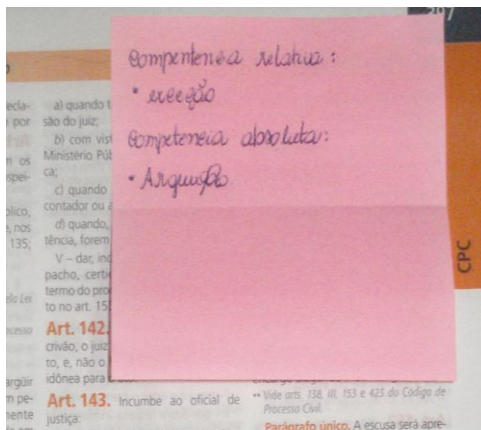 207
Compentencia relativa:
• exceção
Competencia absoluta:
• Arguição
ecla-
por
n os
spei-
olico,
e, nos
135;
ela Lei
ocesso
argüir
m pe-
nente
a) quando t
são do juiz;
b) com vist
Ministério Púb
ca;
c) quando
contador ou a
d) quando,
tência, forem
V – dar, ind
pacho, certi
termo do pro
to no art. 15
Art. 142.
crivão, o juiz
to, e, não o
idônea para o
Art. 143. Incumbe ao oficial de
justiça:
CPC
•• Vide arts. 138, III, 153 e 423 do Código de
Processo Civil.
Parágrafo único. A escusa será apre-